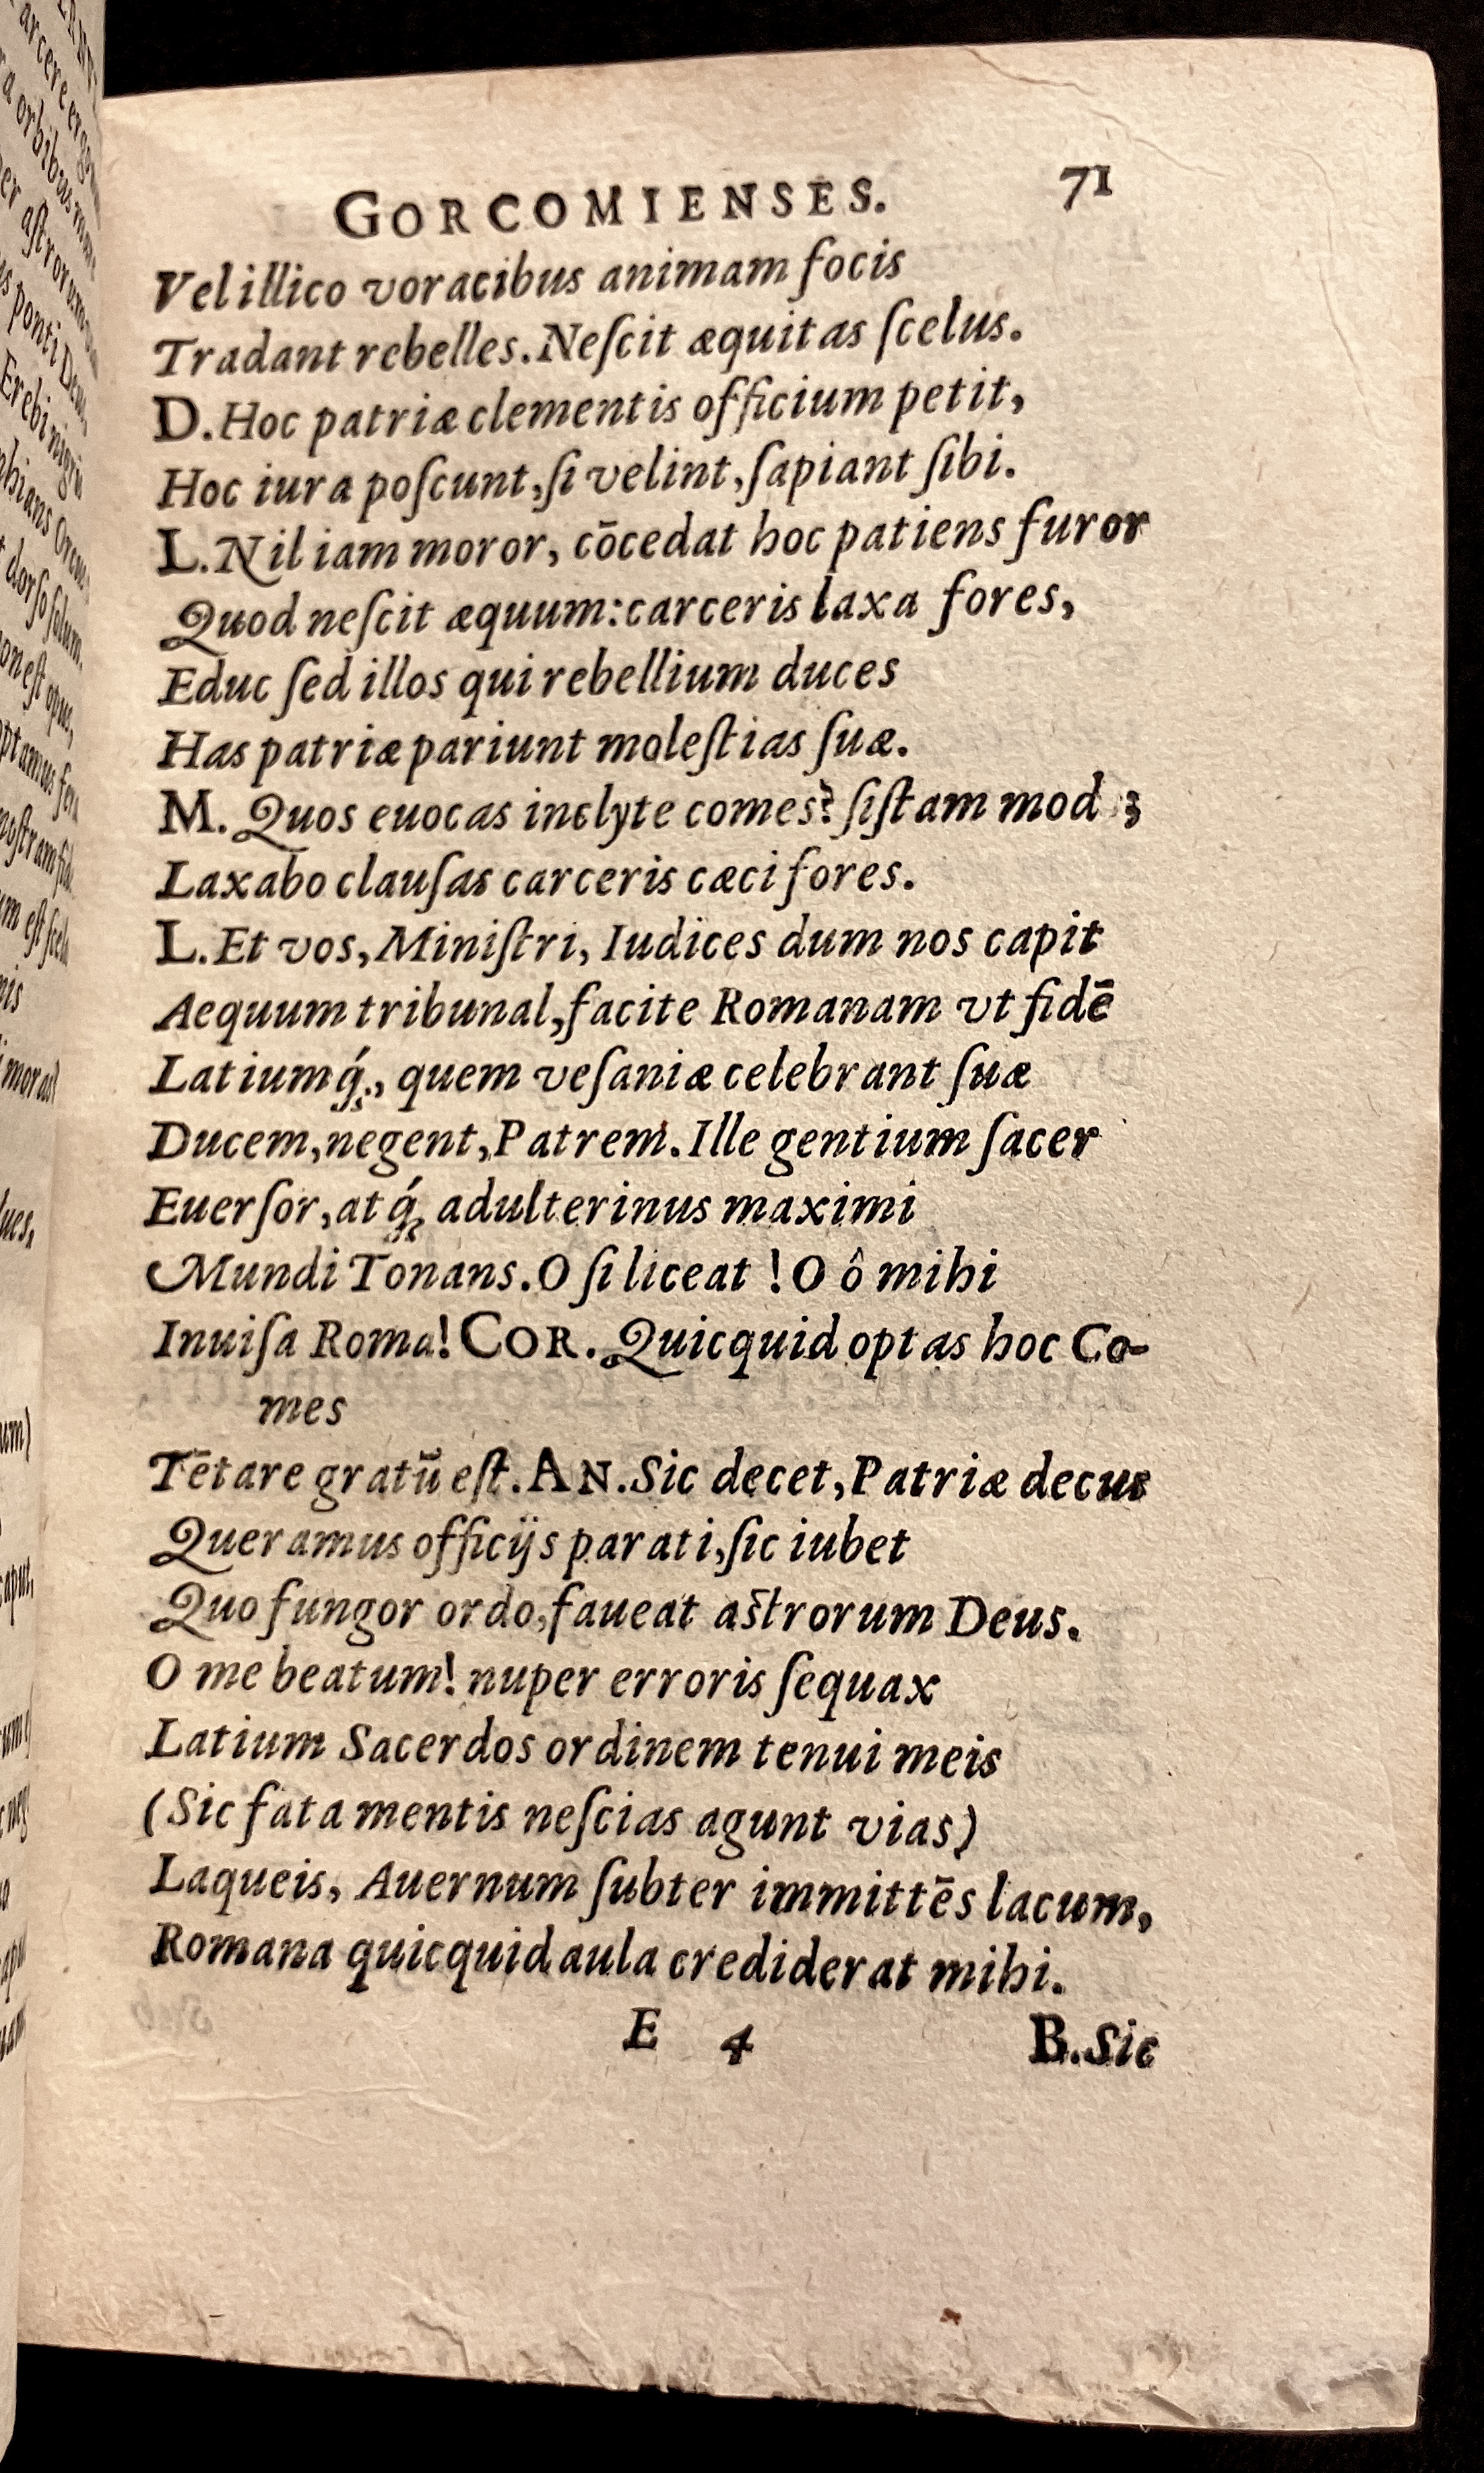 GORCOMIENSES. 71
Vel illico voracibus animam focis
Tradant rebelles. Neſcit æquitas ſcelus.
D. Hoc patriæ clementis officium petit,
Hoc iura poſcunt, ſi velint, ſapiant ſibi.
L. Nil iam moror, cōcedat hoc patiens furor
Quod neſcit æquum: carceris laxa fores,
Educ ſed illos qui rebellium duces
Has patriæ pariunt moleſtias ſuæ.
M. Quos euocas inclyte comes? ſiſtam mod ꝫ
Laxabo clauſas carceris cæci fores.
L. Et vos, Miniſtri, Iudices dum nos capit
Aequum tribunal, facite Romanam vt fidē
Latiumq́;, quem veſaniæ celebrant ſuæ
Ducem, negent, Patrem. Ille gentium ſacer
Euerſor, atq́; adulterinus maximi
Mundi Tonans. O ſi liceat! O ô mihi
Inuiſa Roma! COR. Quicquid optas hoc Co-
mes
Tētare gratū eſt. AN. Sic decet, Patriæ decus
Queramus officijs parati, ſic iubet
Quo fungor ordo, faueat aſtrorum Deus.
O me beatum! nuper erroris ſequax
Latium Sacerdos ordinem tenui meis
(Sic fata mentis neſcias agunt vias)
Laqueis, Auernum ſubter immittēs lacum,
Romana quicquid aula crediderat mihi.
E 4 B. Sic